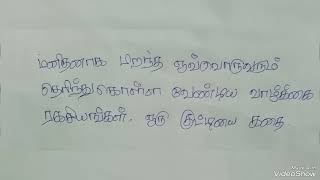 மனிதனாக பிறந்த ஒவ்வொருவரும்
தெரிந்துகொள்ள வேண்டிய வாழ்க்கை
ரகசியங்கள். ஒரு குட்டியை கதை.
Made with
VideoShow